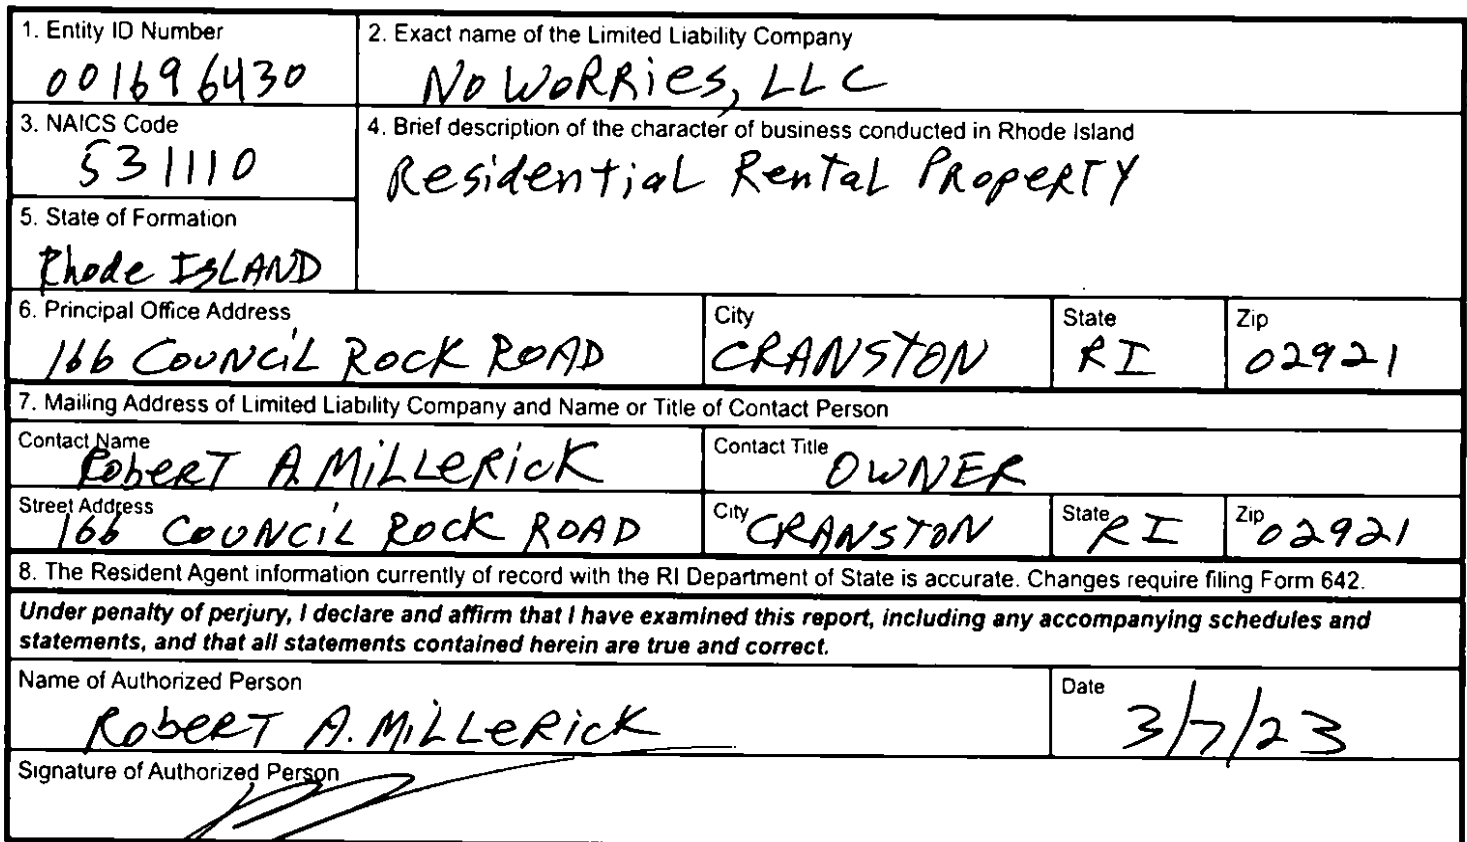 1. Entity ID Number
001696430
2. Exact name of the Limited Liability Company
No WoRRies, LLC
3. NAICS Code
531110
4. Brief description of the character of business conducted in Rhode Island
ResidentiaL RentaL PRopeRTY
5. State of Formation
Rhode IsLAND
6. Principal Office Address
166 CouNciL Rock RoAD
City
CRANSTON
State
RI
Zip
02921
7. Mailing Address of Limited Liability Company and Name or Title of Contact Person
Contact Name
RobeRT A. MiLLeRicK
Contact Title
OWNER
Street Address
166 CouNciL Rock RoAD
City
CRANSTON
State
RI
Zip
02921
8. The Resident Agent information currently of record with the RI Department of State is accurate. Changes require filing Form 642.
Under penalty of perjury, I declare and affirm that I have examined this report, including any accompanying schedules and
statements, and that all statements contained herein are true and correct.
Name of Authorized Person
RobeRT A. MiLLeRicK
Date
3/7/23
Signature of Authorized Person